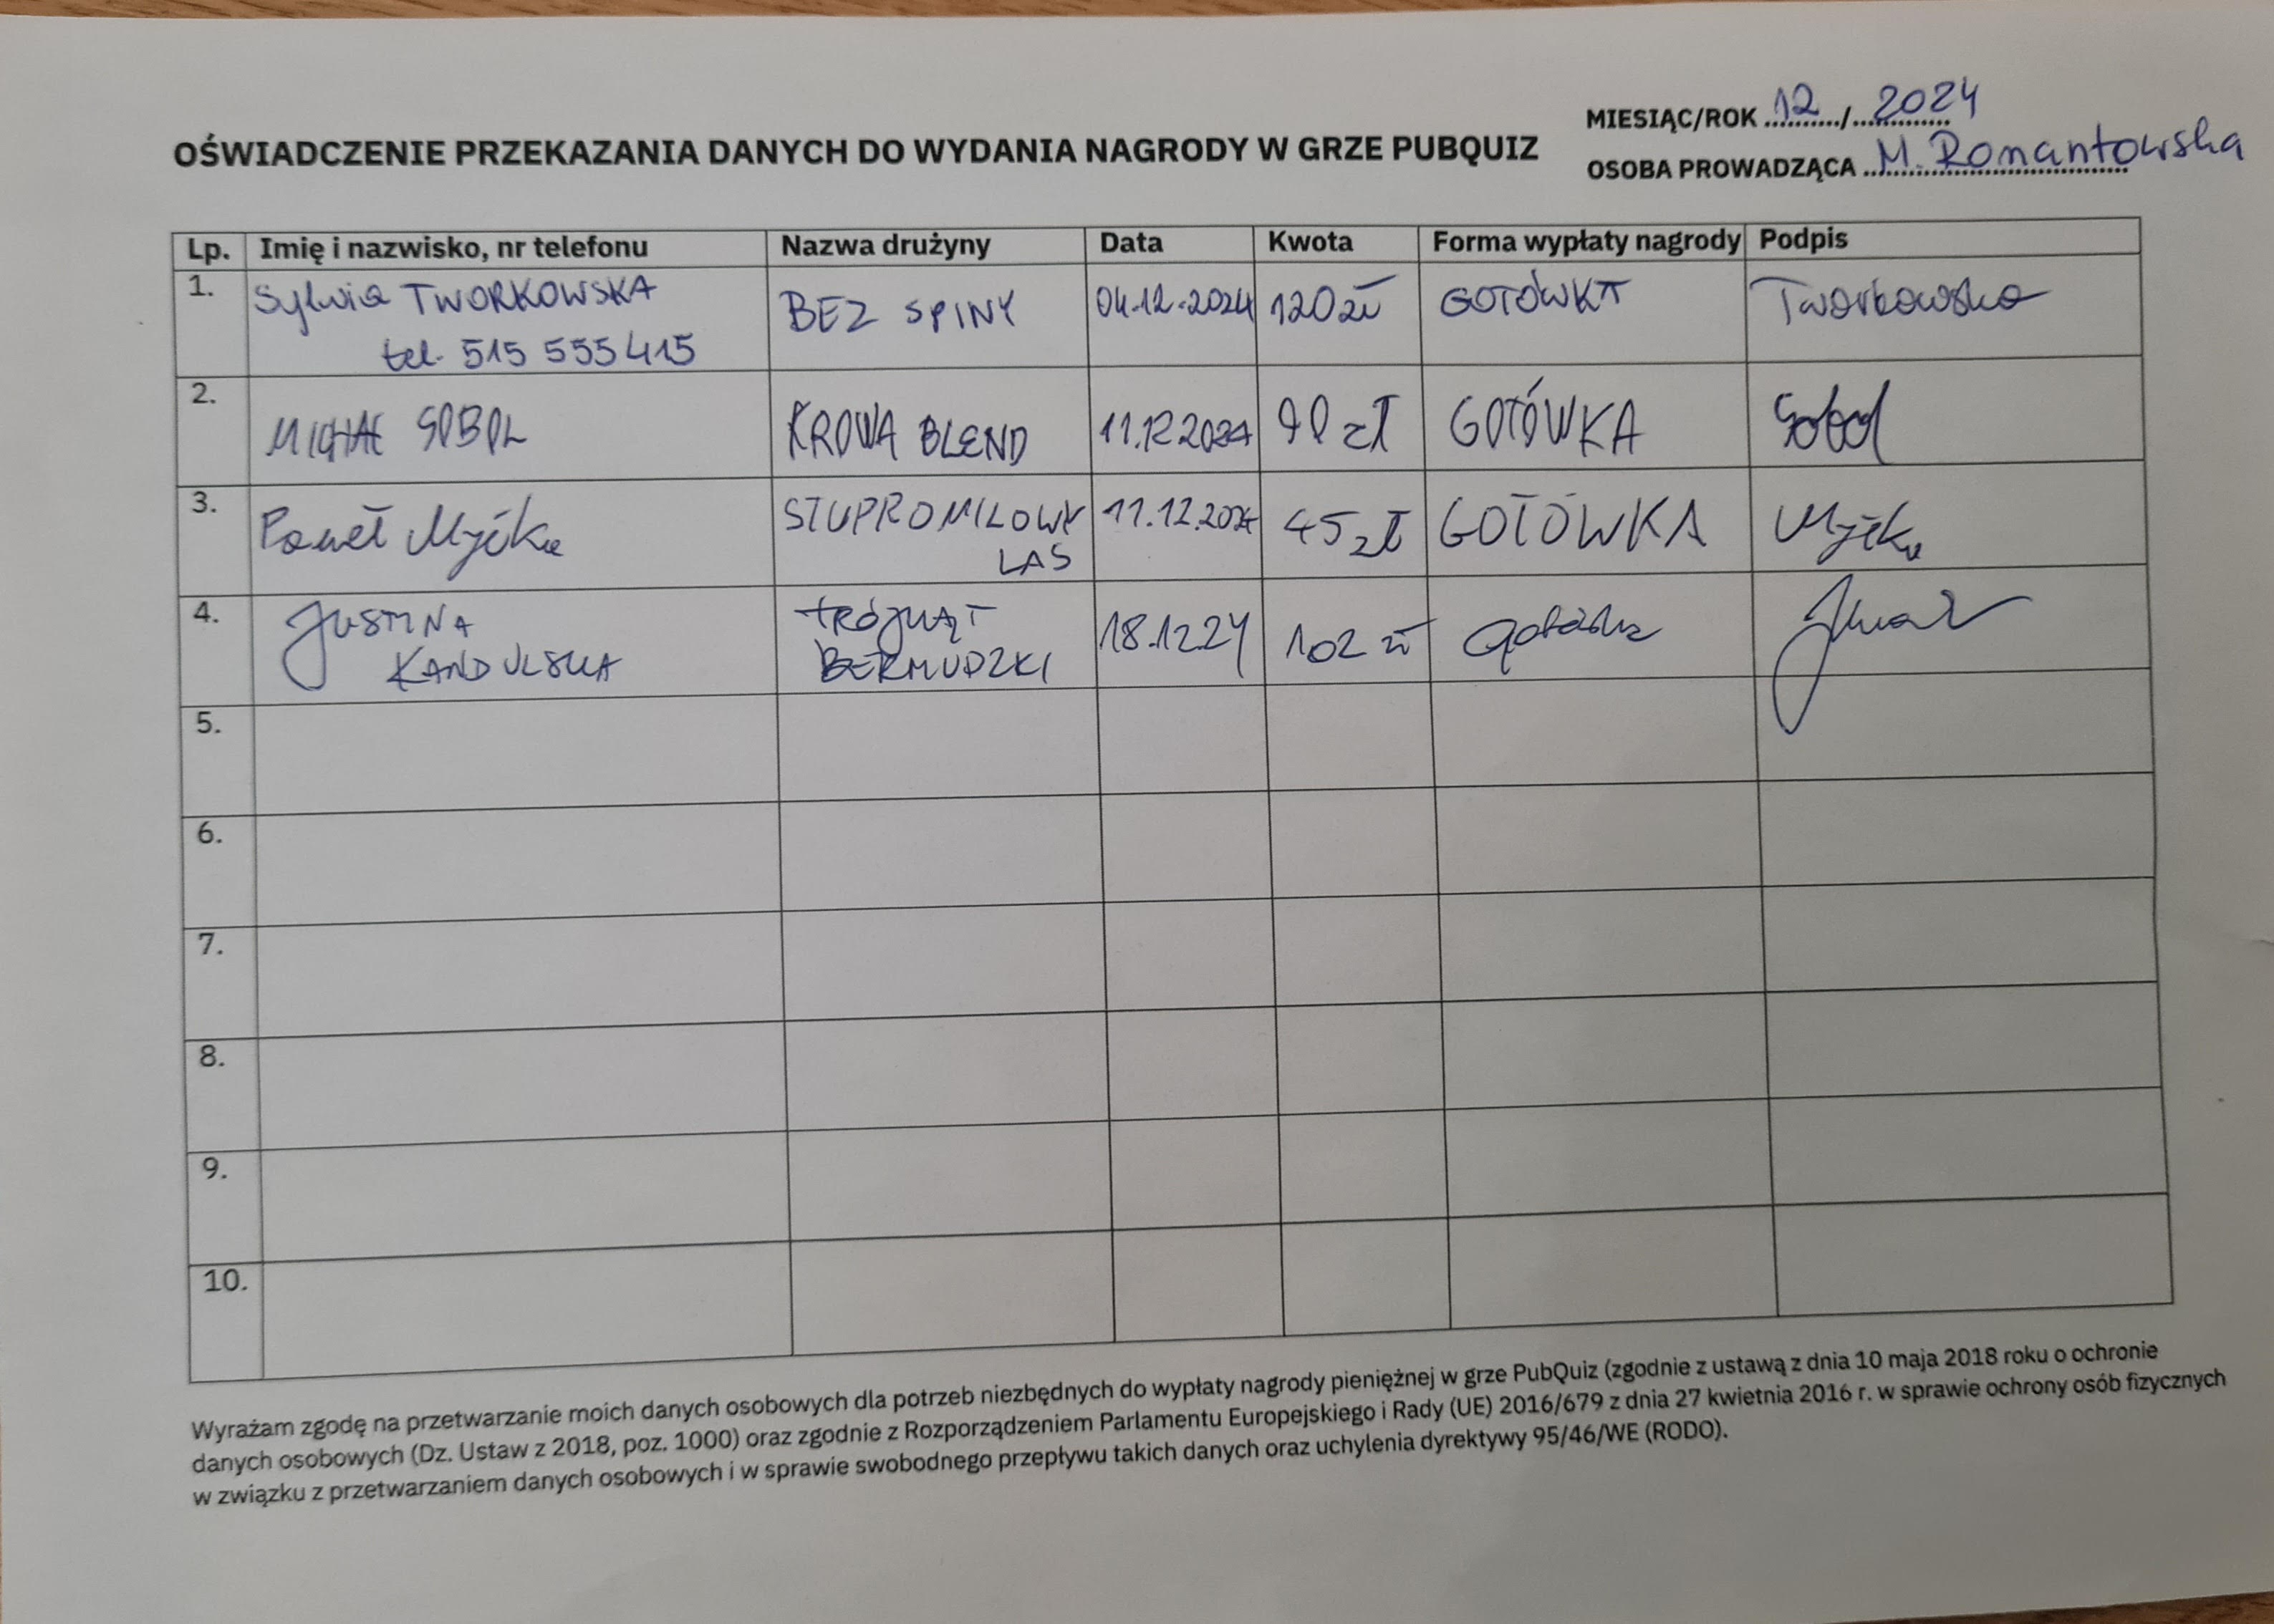 MIESIĄC/ROK 12 / 2024
OŚWIADCZENIE PRZEKAZANIA DANYCH DO WYDANIA NAGRODY W GRZE PUBQUIZ
OSOBA PROWADZĄCA M. Romantowska
Lp. Imię i nazwisko, nr telefonu Nazwa drużyny Data Kwota Forma wypłaty nagrody Podpis
1. Sylwia TWORKOWSKA BEZ SPINY 04.12.2024 120 zł GOTÓWKA Tworkowska
tel. 515 555 415
2. MICHAŁ SOBOL KROWA BLEND 11.12.2024 90 zł GOTÓWKA Sobol
3. Paweł STUPROMILOWY 11.12.2024 45 zł GOTÓWKA
LAS
4. JUSTYNA TRÓJKĄT 18.12.24 102 zł Gotówka
KANDULSKA BERMUDZKI
5.
6.
7.
8.
9.
10.
Wyrażam zgodę na przetwarzanie moich danych osobowych dla potrzeb niezbędnych do wypłaty nagrody pieniężnej w grze PubQuiz (zgodnie z ustawą z dnia 10 maja 2018 roku o ochronie
danych osobowych (Dz. Ustaw z 2018, poz. 1000) oraz zgodnie z Rozporządzeniem Parlamentu Europejskiego i Rady (UE) 2016/679 z dnia 27 kwietnia 2016 r. w sprawie ochrony osób fizycznych
w związku z przetwarzaniem danych osobowych i w sprawie swobodnego przepływu takich danych oraz uchylenia dyrektywy 95/46/WE (RODO).